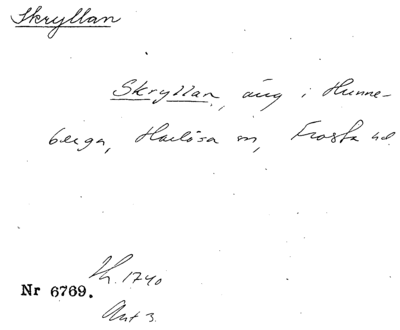 Skryllan
Skryllan, äng i Hunne-
berga, Harlösa sn, Frosta hd.
Lh. 1740
Nr 6769.
Akt 3.